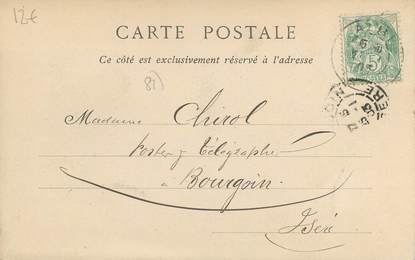 12€
CARTE POSTALE
Ce côté est exclusivement réservé à l'adresse
81)
Madame Chirol
Postes & Télégraphe
à Bourgoin
Isére
5